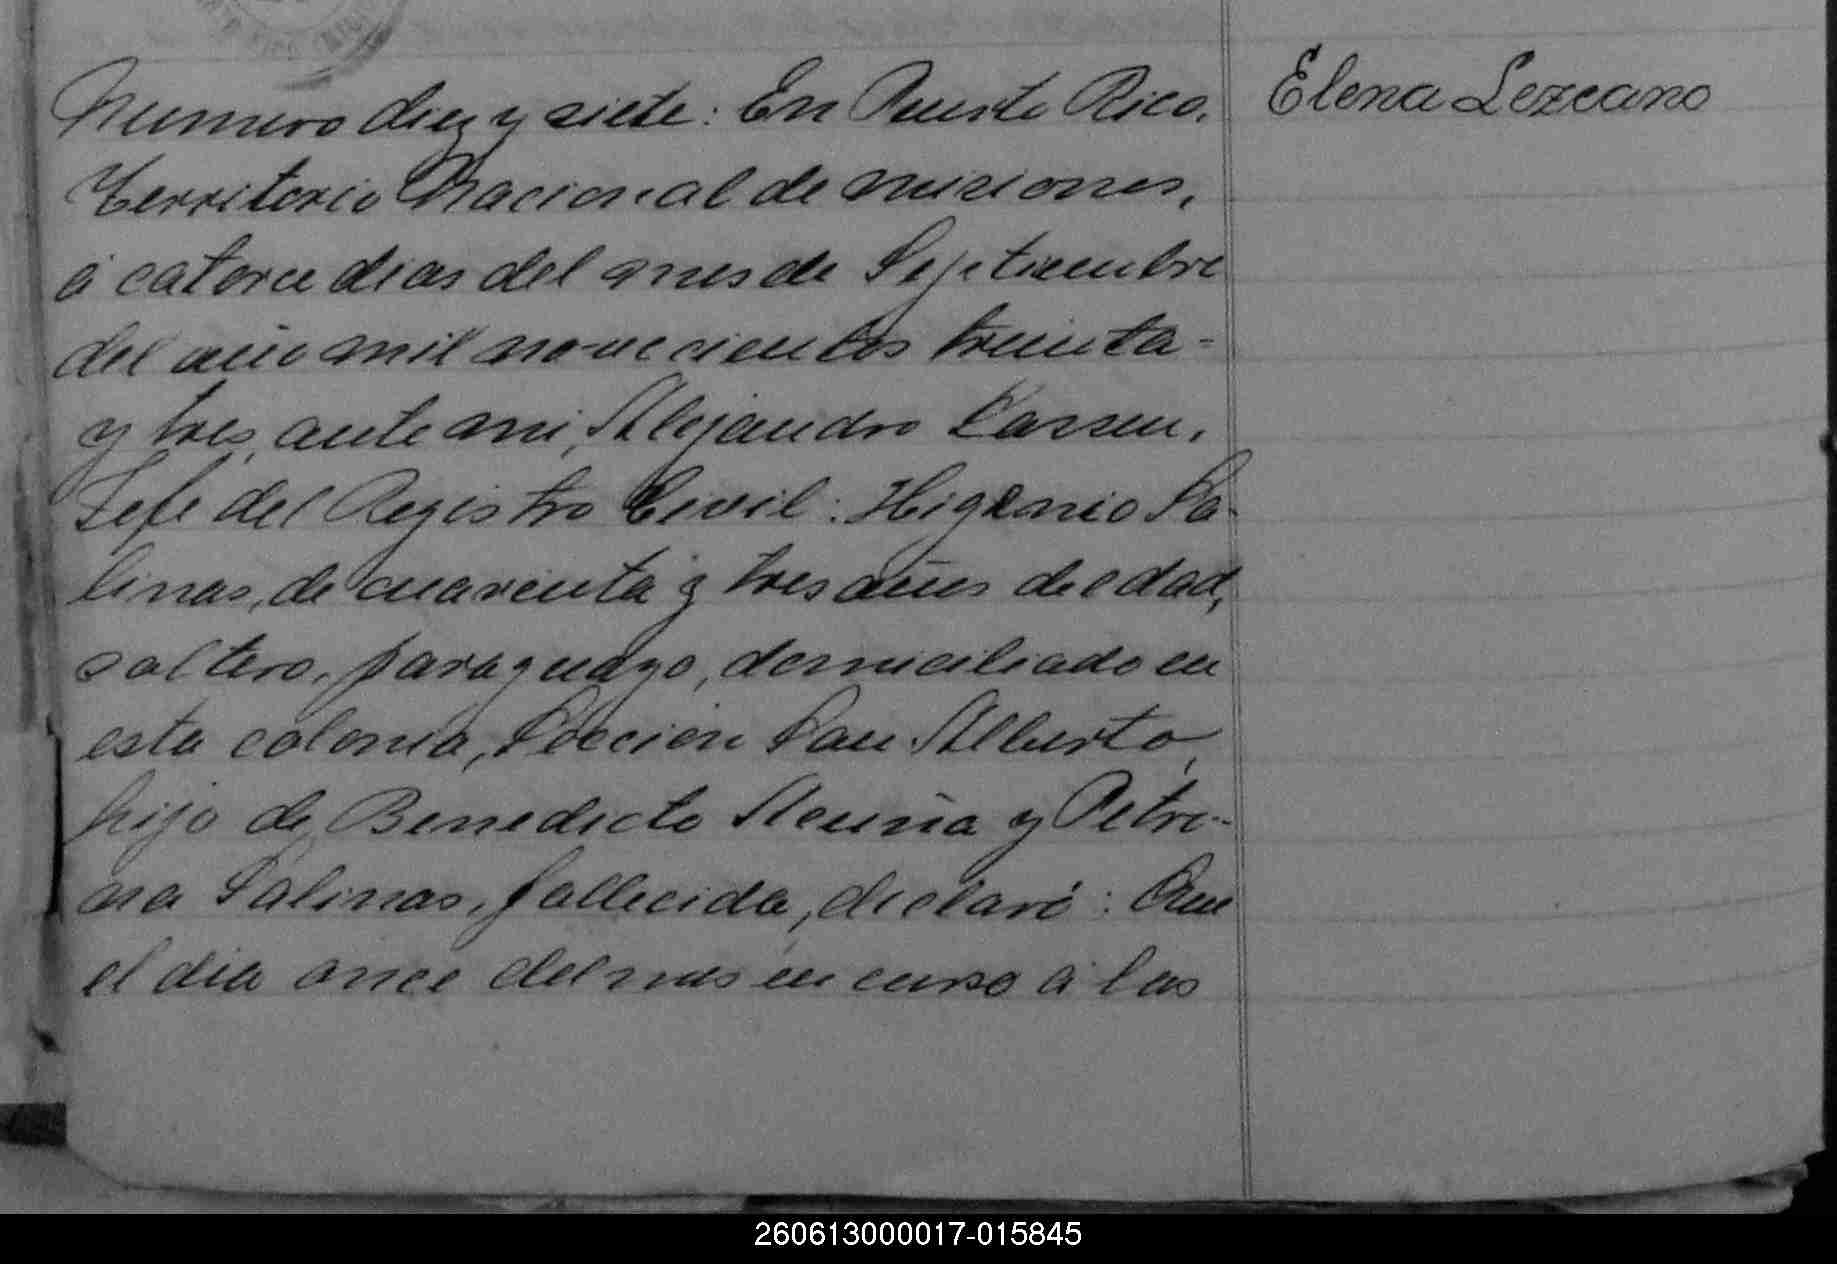 Numero diez y siete: En Puerto Rico,
Elena Lezcano
Territorio Nacional de Misiones,
á catorce dias del mes de Septiembre
del año mil novecientos treinta-
y tres, ante mi, Alejandro Larsen,
Jefe del Registro Civil: Higenio Sa-
linas, de cuarenta y tres años de edad,
soltero, paraguayo, domiciliado en
esta colonia, Sección San Alberto,
hijo de Benedicto Acuña y Petro-
na Salinas, fallecida, declaró: Que
el dia once del mes en curso á las
260613000017-015845